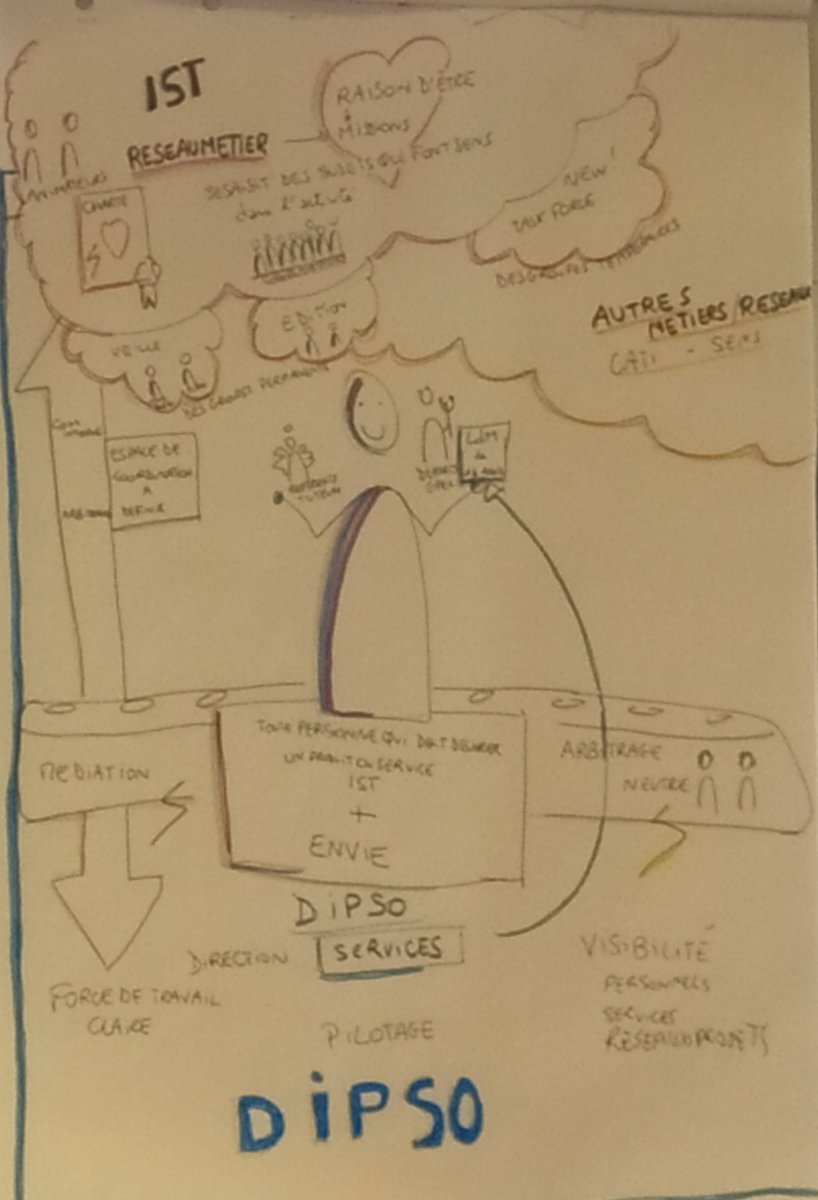 IST
RAISON D'ÊTRE
MISSIONS
RESEAU METIER
ANIMATEURS
SE SAISIT DES SUJETS QUI FONT SENS
dans l'activité
CHARTE
NEW!
TASK FORCE
DES GROUPES TEMPORAIRES
AUTRES
METIERS/RESEAUX
CATI - SENS
VEILLE
EDITION
DES GROUPES PERMANENTS
ESPACE DE
COORDINATION
A
DEFINIR
MEDIATION
TOUTE PERSONNE QUI DOIT DELIVRER
UN PRODUIT OU SERVICE
IST
+
ENVIE
ARBITRAGE
NEUTRE
DIPSO
DIRECTION
SERVICES
PILOTAGE
FORCE DE TRAVAIL
CLAIRE
VISIBILITÉ
PERSONNELS
SERVICES
RESEAUX PROJETS
DiPSO